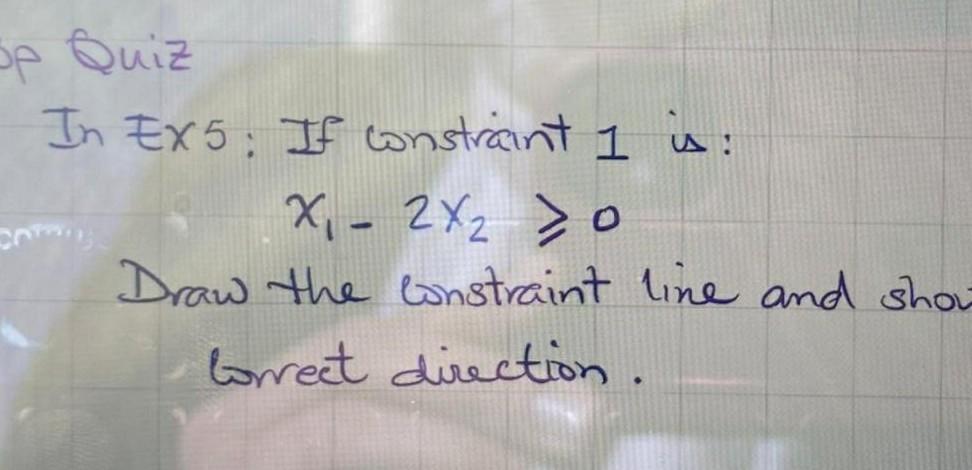 Quiz
In Ex5: If constraint 1 is:
x₁ - 2x₂ ≥ 0
Draw the constraint line and
correct direction.